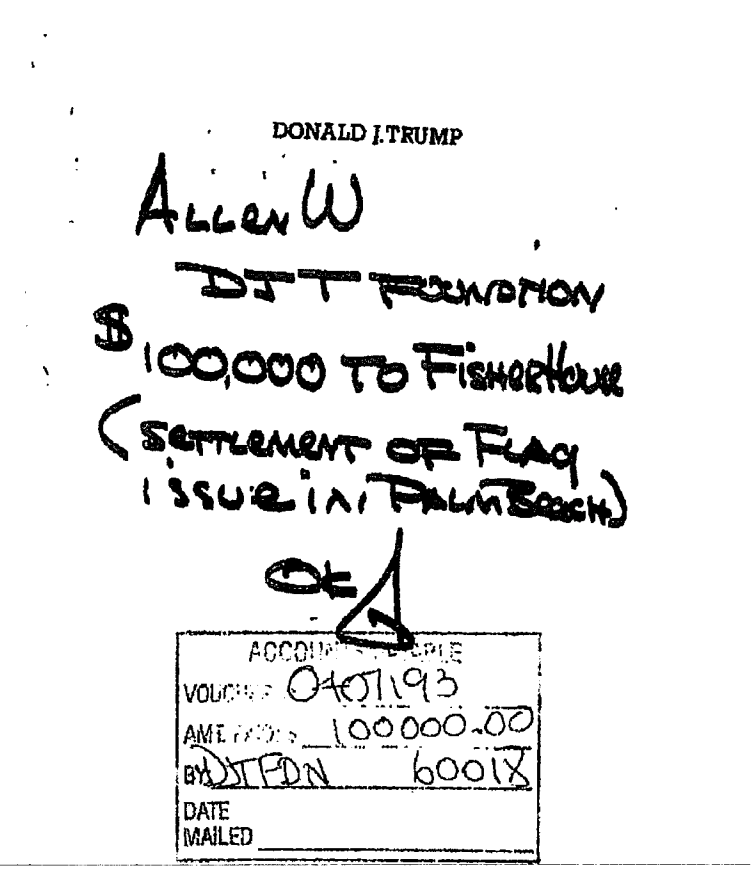 DONALD J. TRUMP
ALLEN W
DJT FOUNDATION
$100,000 TO FISHERHOUSE
(SETTLEMENT OF FLAG
ISSUE IN PALM BEACH)
OK
ACCOUNTS PAYABLE
VOUCHER
AMT 100000.00
BY DJTFDN 60018
DATE
MAILED